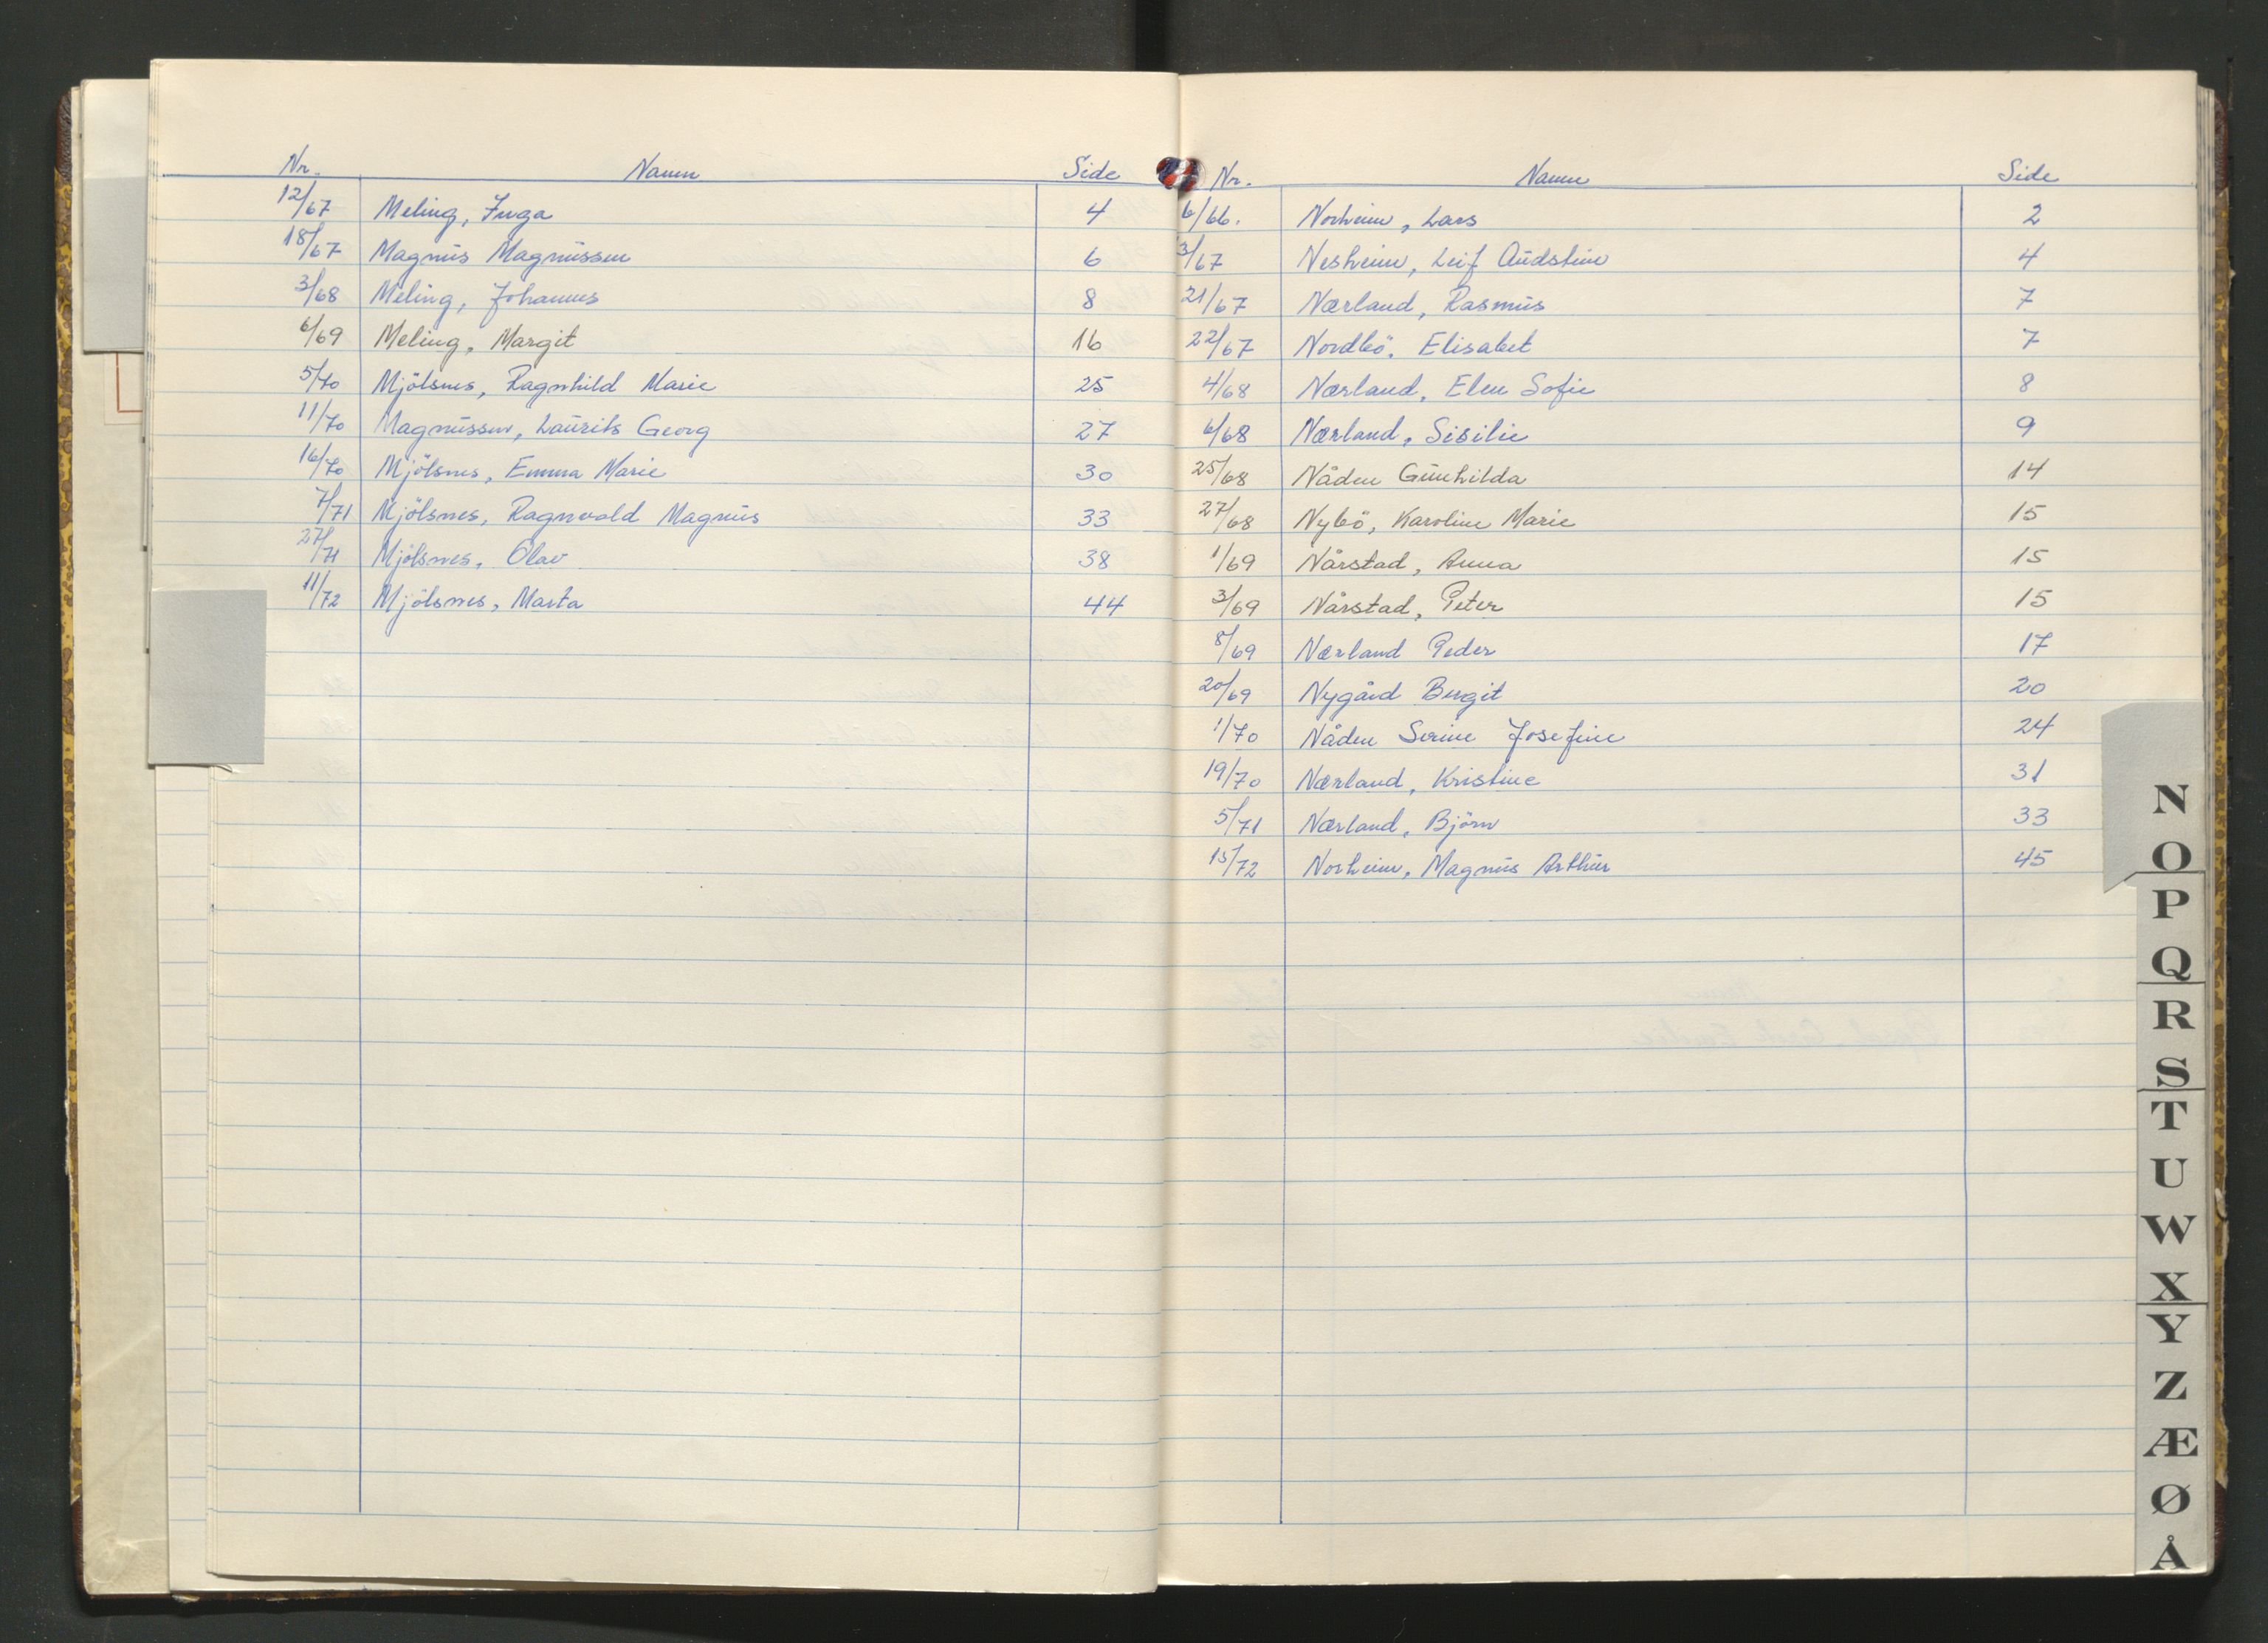 Nr. Namn Side
12/67 Meling, Inga 4
18/67 Magnus Magnussen 6
3/68 Meling, Johannes 8
6/69 Meling, Margit 16
5/70 Mjölsnes, Ragnhild Marie 25
11/70 Magnussen, Laurits Georg 27
16/70 Mjölsnes, Emma Marie 30
7/71 Mjölsnes, Ragnvald Magnus 33
27/71 Mjölsnes, Olav 38
11/72 Mjölsnes, Marta 44
Nr. Namn Side
6/66. Norheim, Lars 2
3/67 Nesheim, Leif Audstein 4
21/67 Nærland, Rasmus 7
22/67 Nordbö, Elisabet 7
4/68 Nærland, Elen Sofie 8
6/68 Nærland, Sisilie 9
25/68 Nåden Gunhilda 14
27/68 Nybö, Karoline Marie 15
1/69 Nårstad, Anna 15
3/69 Nårstad, Peter 15
8/69 Nærland Peder 17
20/69 Nygård Bergit 20
1/70 Nåden Serine Josefine 24
19/70 Nærland, Kristine 31
5/71 Nærland, Björn 33
15/72 Norheim, Magnus Arthur 45
N
O
P
Q
R
S
T
U
W
X
Y
Z
Æ
Ø
Å